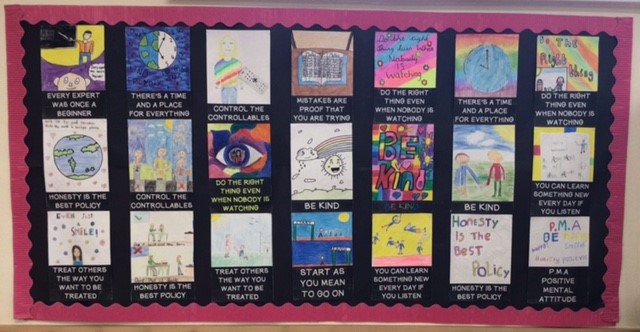 EVERY EXPERT
WAS ONCE A
BEGINNER
THERE'S A TIME
AND A PLACE
FOR EVERYTHING
CONTROL THE
CONTROLLABLES
MISTAKES ARE
PROOF THAT
YOU ARE TRYING
Do the right
thing even when
Nobody
IS
Watching
DO THE RIGHT
THING EVEN
WHEN NOBODY IS
WATCHING
THERE'S A TIME
AND A PLACE
FOR EVERYTHING
Do The
Right
thing
DO THE RIGHT
THING EVEN
WHEN NOBODY IS
WATCHING
HONESTY IS THE
BEST POLICY
CONTROL THE
CONTROLLABLES
DO THE RIGHT
THING EVEN
WHEN NOBODY IS
WATCHING
BE KIND
BE
Kind
BE KIND
BE KIND
YOU CAN LEARN
SOMETHING NEW
EVERY DAY IF
YOU LISTEN
SMILE!
TREAT OTHERS
THE WAY YOU
WANT TO BE
TREATED
HONESTY IS THE
BEST POLICY
TREAT OTHERS
THE WAY YOU
WANT TO BE
TREATED
START AS
YOU MEAN
TO GO ON
YOU CAN LEARN
SOMETHING NEW
EVERY DAY IF
YOU LISTEN
Honesty
Is the
Best
Policy
HONESTY IS THE
BEST POLICY
P.M.A
BE
P.M.A
POSITIVE
MENTAL
ATTITUDE